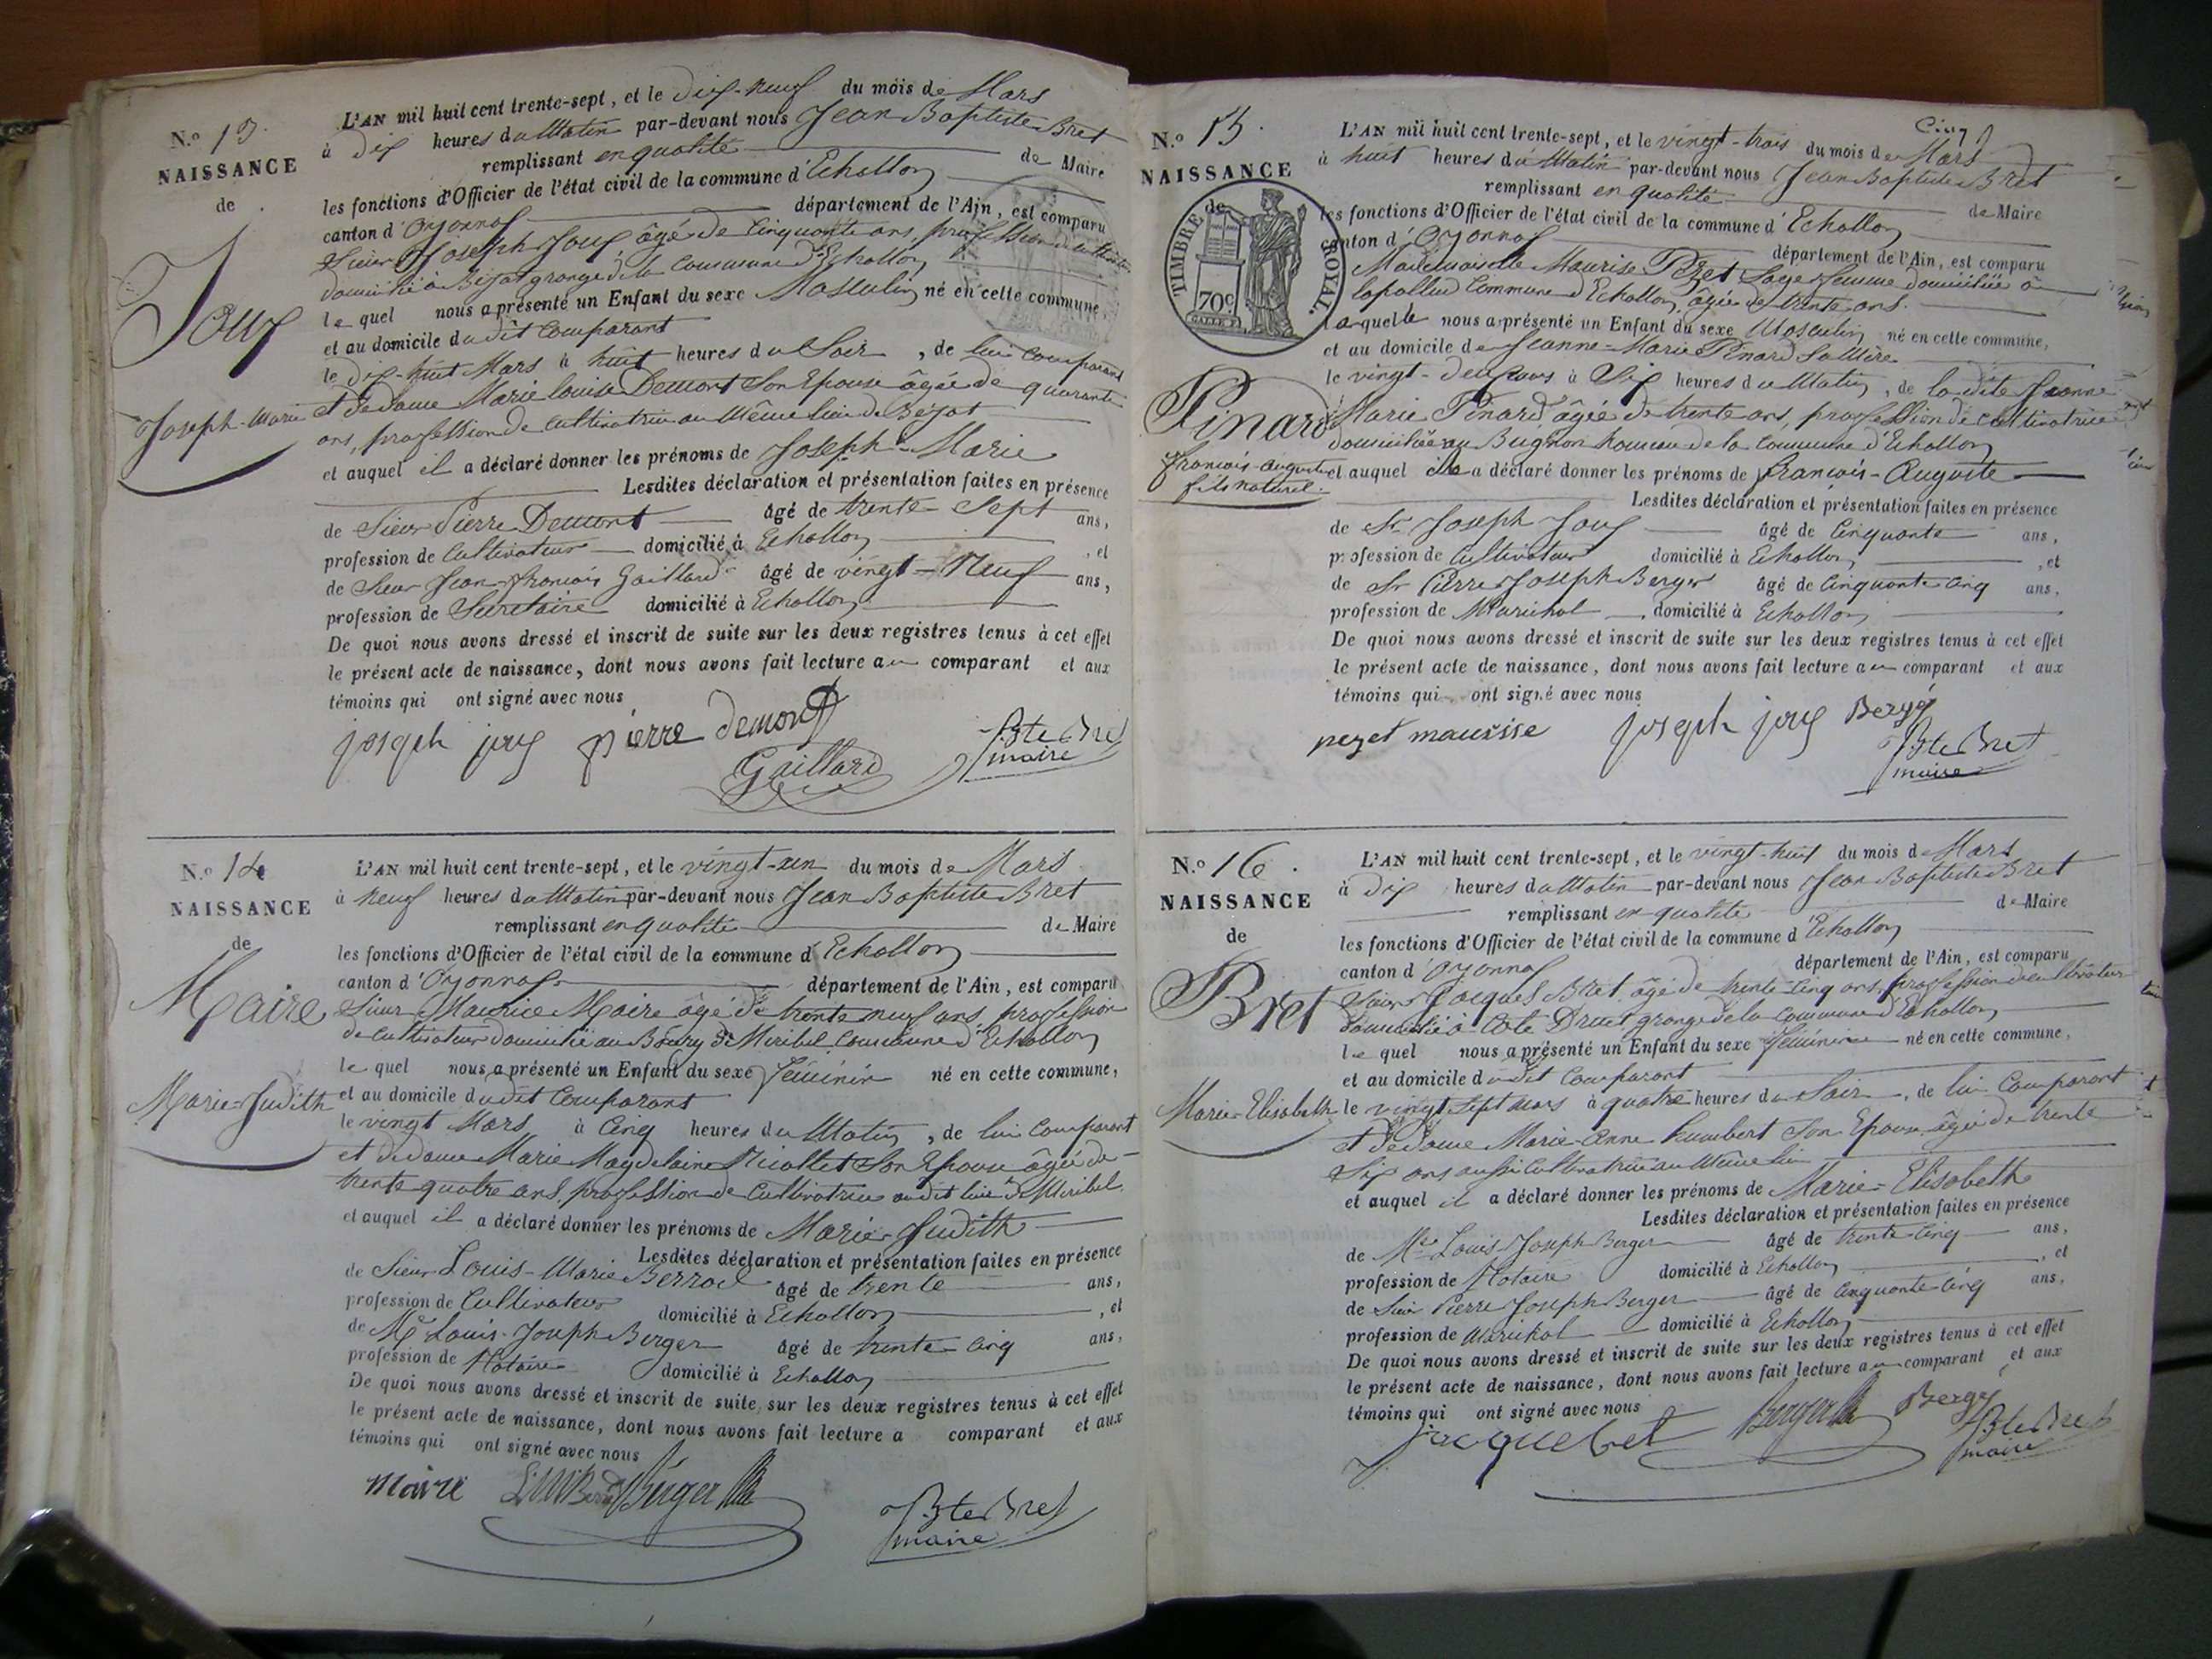 N.o 13.
NAISSANCE
de
Joux
Joseph-Marie
L'AN mil huit cent trente-sept, et le dix-neuf du mois de Mars
à dix heures du Matin par-devant nous Jean Baptiste Bret
remplissant en qualité de Maire
les fonctions d'Officier de l'état civil de la commune d'Echallon
canton d'Oyonnax département de l'Ain, est comparu
Sieur Joseph Joux âgé de Cinquante ans, profession de cultivateur
domicilié à Bézat grange de la Commune d'Echallon
le quel nous a présenté un Enfant du sexe Masculin né en cette commune,
et au domicile dudit Comparant
le dix-huit Mars à huit heures du Soir, de lui Comparant
et de dame Marie louise Demont Son Epouse âgée de quarante
ans, profession de cultivatrice au Même lieu de Bézat
et auquel il a déclaré donner les prénoms de Joseph-Marie
Lesdites déclaration et présentation faites en présence
de Sieur Pierre Demont âgé de trente-Sept ans,
profession de Cultivateur domicilié à Echallon, et
de Sieur Jean-françois Gaillard âgé de vingt-Neuf ans,
profession de Secretaire domicilié à Echallon
De quoi nous avons dressé et inscrit de suite sur les deux registres tenus à cet effet
le présent acte de naissance, dont nous avons fait lecture au comparant et aux
témoins qui ont signé avec nous
joseph joux pierre demont
Gaillard
J. Bte Bret
maire
N.o 14
NAISSANCE
de
Maire
Marie-Judith
L'AN mil huit cent trente-sept, et le vingt-un du mois de Mars
à neuf heures du Matin par-devant nous Jean Baptiste Bret
remplissant en qualité de Maire
les fonctions d'Officier de l'état civil de la commune d'Echallon
canton d'Oyonnax département de l'Ain, est comparu
Sieur Maurice Maire âgé de trente neuf ans, profession
de cultivateur domicilié au Bourg de Miribel Commune d'Echallon
le quel nous a présenté un Enfant du sexe féminin né en cette commune,
et au domicile dudit Comparant
le vingt Mars à Cinq heures du Matin, de lui Comparant
et de dame Marie Magdelaine Nicollet Son Epouse âgée de
trente quatre ans, profession de Cultivatrice audit lieu de Miribel
et auquel il a déclaré donner les prénoms de Marie-Judith
Lesdites déclaration et présentation faites en présence
de Sieur Louis-Marie Berrod âgé de trente ans,
profession de Cultivateur domicilié à Echallon, et
de Me Louis-Joseph Berger âgé de trente-cinq ans,
profession de Notaire domicilié à Echallon
De quoi nous avons dressé et inscrit de suite, sur les deux registres tenus à cet effet
le présent acte de naissance, dont nous avons fait lecture a comparant et aux
témoins qui ont signé avec nous
maire L M Berrod Berger
J. Bte Bret
maire
Cinq
N.o 15.
NAISSANCE
de
TIMBRE ROYAL.
70c
Pinard
françois-auguste
fils naturel.
L'AN mil huit cent trente-sept, et le vingt-trois du mois de Mars
à huit heures du Matin par-devant nous Jean Baptiste Bret
remplissant en qualité de Maire
les fonctions d'Officier de l'état civil de la commune d'Echallon
canton d'Oyonnax département de l'Ain, est comparu
Mademoiselle Maurise Pezet Sage femme domiciliée à
lapallud Commune d'Echallon, âgée de trente ans.
laquelle nous a présenté un Enfant du sexe Masculin né en cette commune,
et au domicile de Jeanne-Marie Pinard Sa Mère
le vingt-deux mars à Six heures du Matin, de la dite Jeanne
Marie Pinard, âgée de trente ans, profession de cultivatrice
domiciliée au Bugnon hameau de la Commune d'Echallon
et auquel elle a déclaré donner les prénoms de françois-Auguste
Lesdites déclaration et présentation faites en présence
de Sr Joseph Joux âgé de Cinquante ans,
profession de Cultivateur domicilié à Echallon, et
de Sr Pierre Joseph Berger âgé de Cinquante cinq ans,
profession de Maréchal domicilié à Echallon
De quoi nous avons dressé et inscrit de suite sur les deux registres tenus à cet effet
le présent acte de naissance, dont nous avons fait lecture au comparant et aux
témoins qui ont signé avec nous
pezet maurise joseph joux Berger
J. Bte Bret
maire
N.o 16.
NAISSANCE
de
Bret
Marie-Elisabeth
L'AN mil huit cent trente-sept, et le vingt-huit du mois de Mars
à dix heures du Matin par-devant nous Jean Baptiste Bret
remplissant en qualité de Maire
les fonctions d'Officier de l'état civil de la commune d'Echallon
canton d'Oyonnax département de l'Ain, est comparu
Sieur Jacques Bret âgé de trente-Cinq ans, profession de cultivateur
domicilié à Cote Druet grange de la Commune d'Echallon
le quel nous a présenté un Enfant du sexe féminin né en cette commune,
et au domicile dudit Comparant
le vingt Sept mars à quatre heures du Soir, de lui Comparant
et de dame Marie-anne humbert Son Epouse âgée de trente
Six ans aussi Cultivatrice au Même lieu
et auquel il a déclaré donner les prénoms de Marie-Elisabeth
Lesdites déclaration et présentation faites en présence
de Me Louis Joseph Berger âgé de trente Cinq ans,
profession de Notaire domicilié à Echallon, et
de Sieur Pierre Joseph Berger âgé de Cinquante Cinq ans,
profession de Maréchal domicilié à Echallon
De quoi nous avons dressé et inscrit de suite sur les deux registres tenus à cet effet
le présent acte de naissance, dont nous avons fait lecture au comparant et aux
témoins qui ont signé avec nous
jacque bret Berger Berger
J. Bte Bret
maire